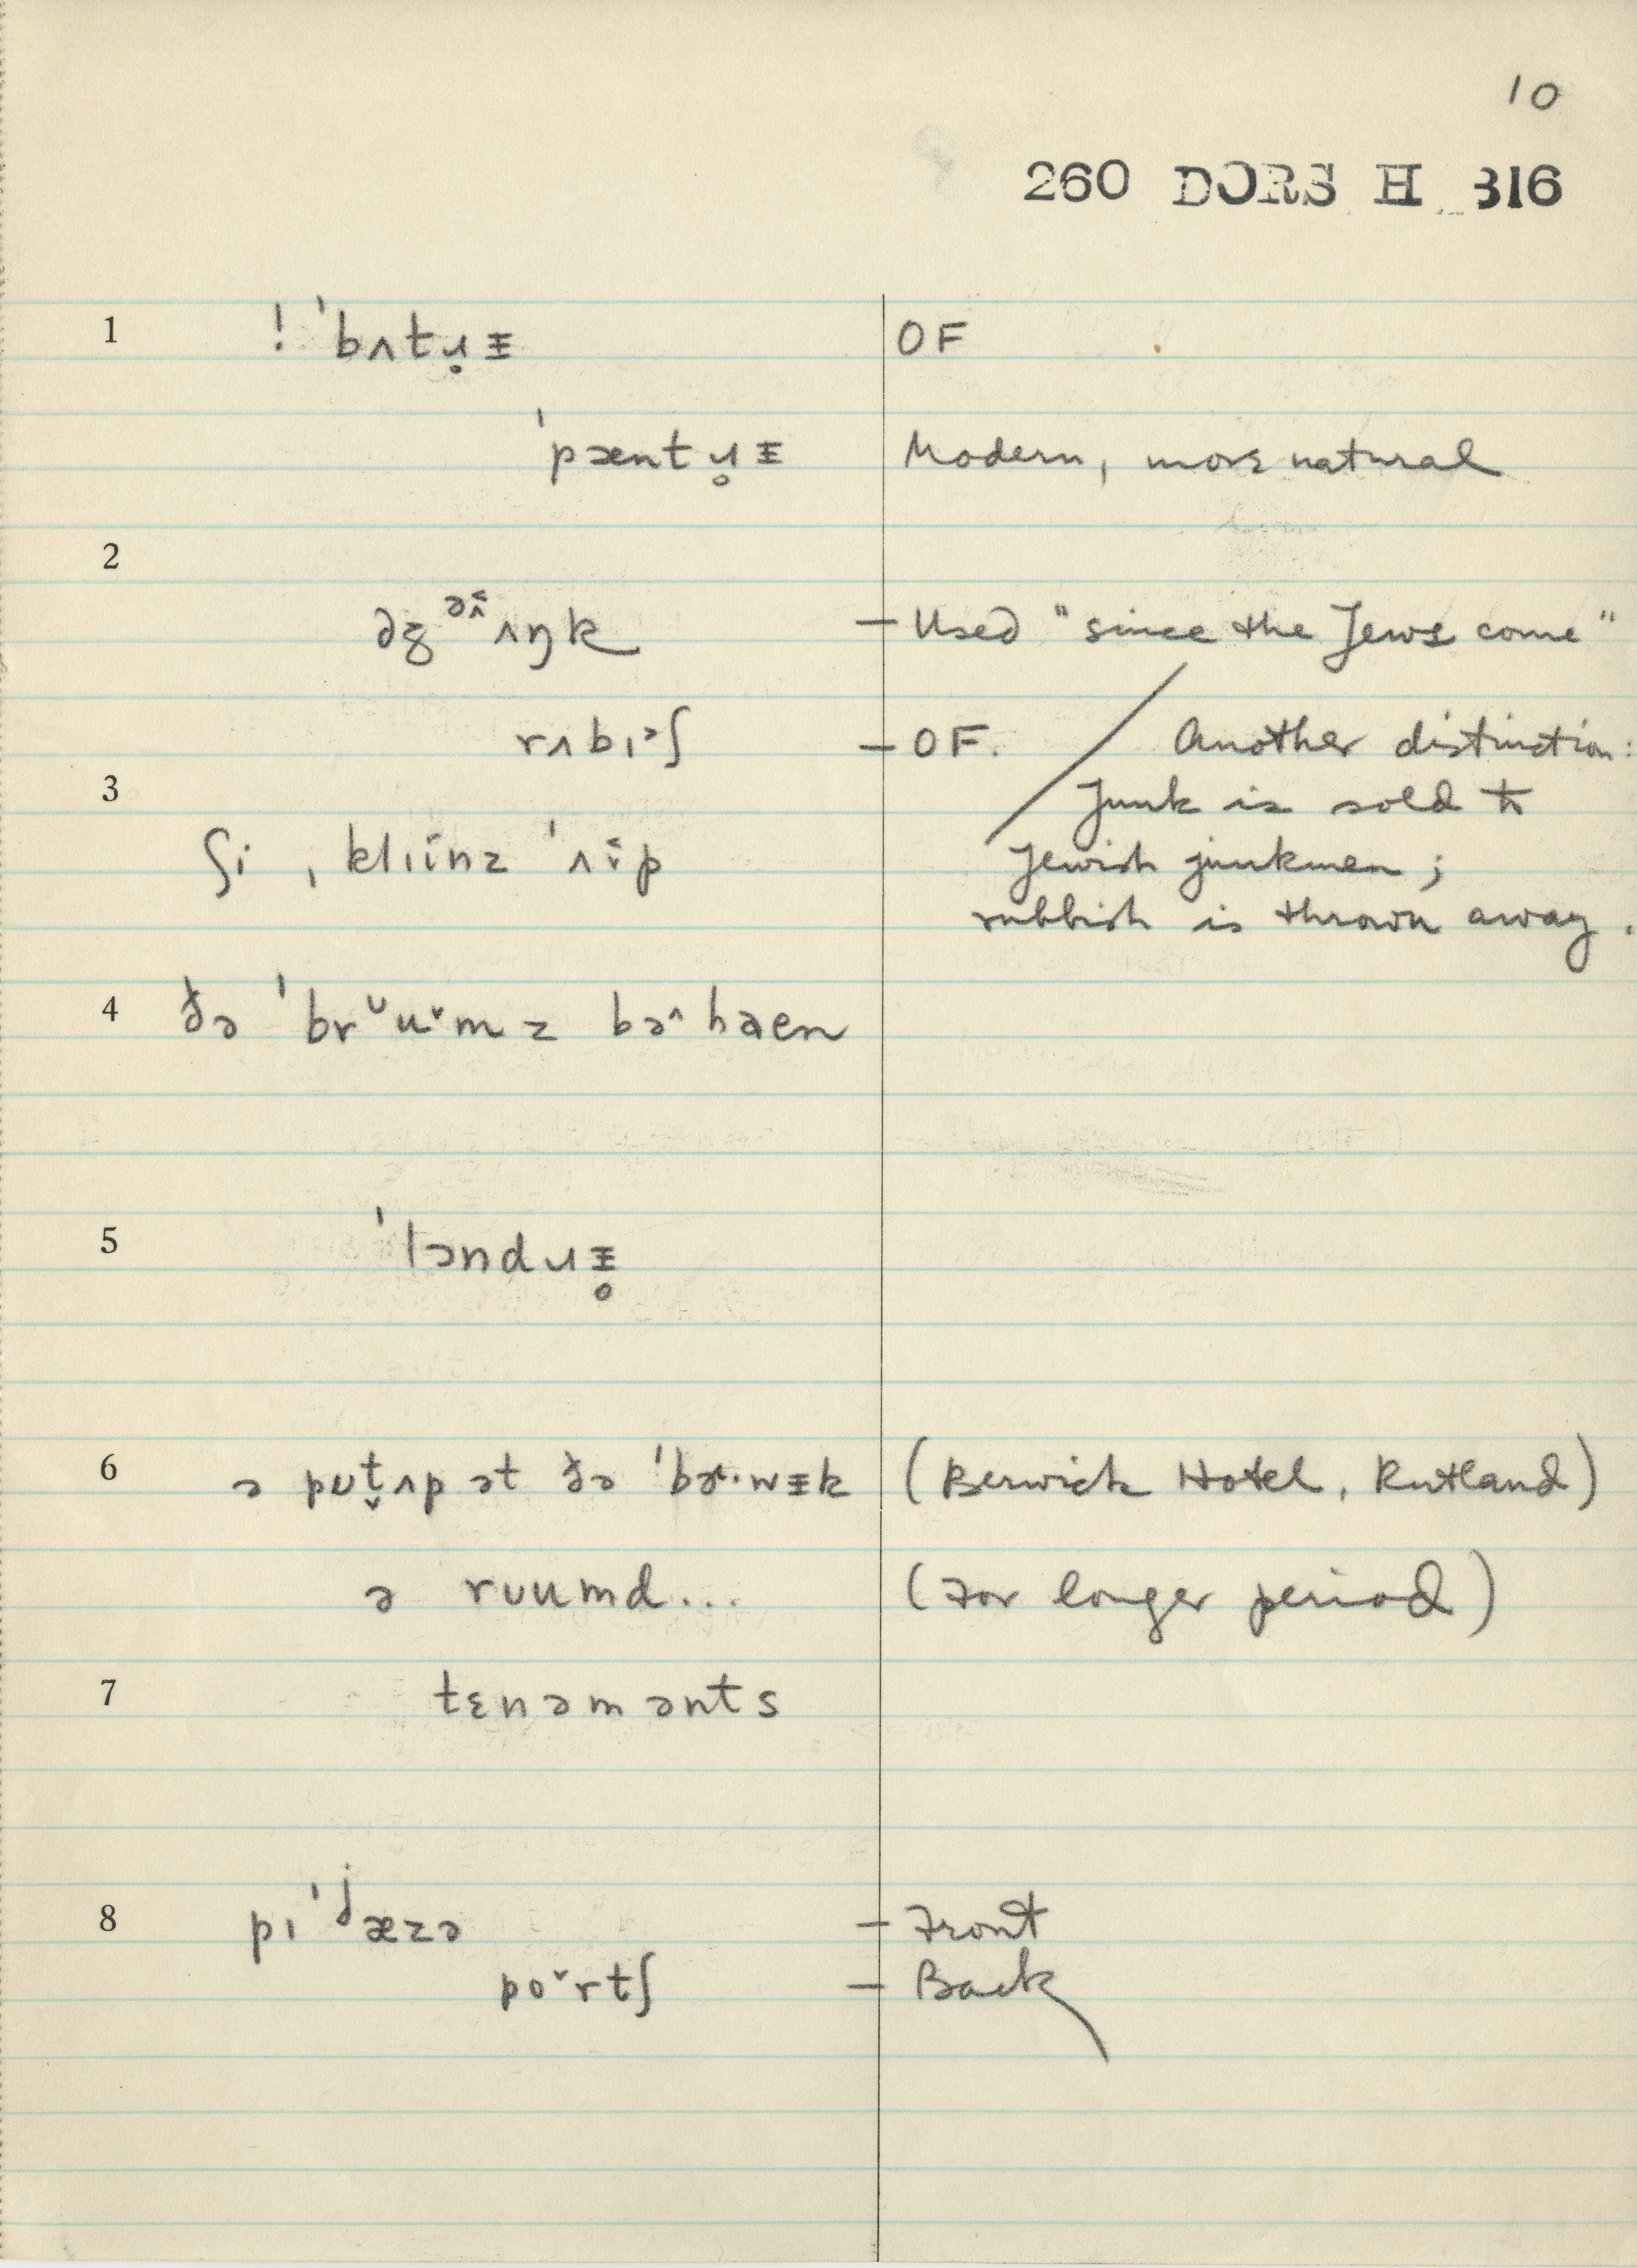 10
260 DORS H 316
1 ! ˈbʌtɹ̥ᵻ OF
ˈpæntɹ̥ᵻ Modern, more natural
2
ʌŋk — Used "since the Jews come"
rʌbɪᵊʃ — OF. / Another distinction:
3 Junk is sold to
ʃi ˌklɪinz ˈʌp Jewish junkmen ;
rubbish is thrown away.
4 ðə ˈbrᴜumz bəhaen
5 ˈlɔndɹᵻ̥
6 ə pᴜt̬ʌp ət ðə ˈbɚ·wᵻk (Berwick Hotel, Rutland)
ə rᴜumd... (For longer period)
7 tɛnəmənts
8 pɪˈjæzə — Front
po˅rtʃ — Back